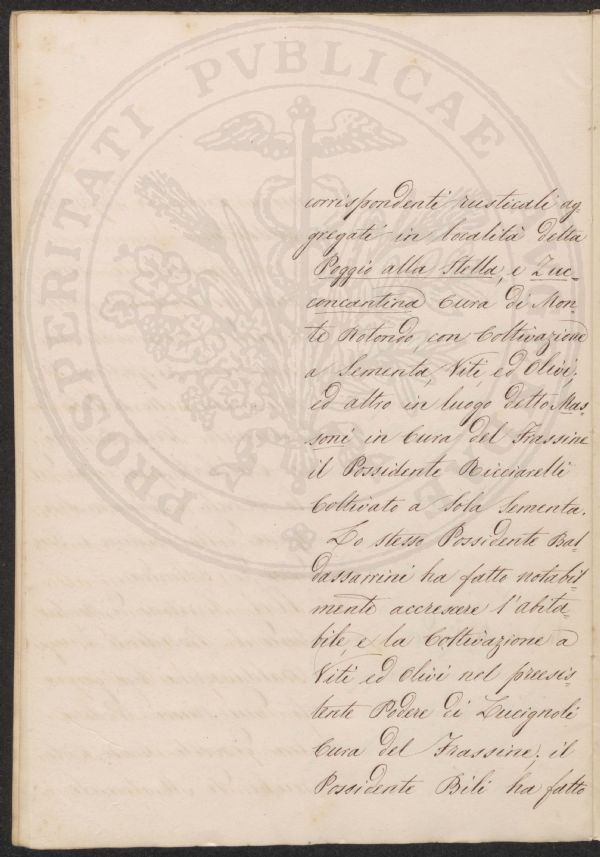 PROSPERITATI PVBLICAE
corrispondenti rusticali ag-
gregati in località detta
Poggio alla Stella, e Zuc-
concantina Cura di Mon-
te Rotondo, con Coltivazione
a Sementa, Viti, ed Olivi,
ed altro in luogo detto Mas-
soni in Cura del Frassine
il Possidente Ricciarelli
Coltivato a sola Sementa.
Lo stesso Possidente Bal-
dassarrini ha fatto notabil-
mente accresare l'abita-
bile, e la Coltivazione a
Viti ed Olivi nel preesis-
tente Podere di Lucignoli
Cura del Frassine; il
Possidente Bili ha fatto